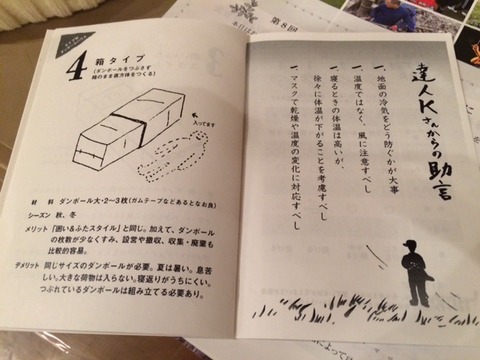 4
箱タイプ
(ダンボールをつぶさず
箱のまま直方体をつくる)
入ってます
材　料　ダンボール大・2〜3枚(ガムテープなどあるとなお良)
シーズン　秋、冬
メリット　「囲い&ふたスタイル」と同じ。加えて、ダンボール
の枚数が少なくすみ、設営や撤収、収集・廃棄も
比較的容易。
デメリット　同じサイズのダンボールが必要。夏は暑い。息苦
しい。大きな荷物は入らない。寝返りがうちにくい。
つぶれているダンボールは組み立てる必要あり。
達人Kさんからの助言
一、地面の冷気をどう防ぐかが大事
一、温度ではなく、風に注意すべし
一、寝るときの体温は高いが、
徐々に体温が下がることを考慮すべし
一、マスクで乾燥や温度の変化に対応すべし
第8回